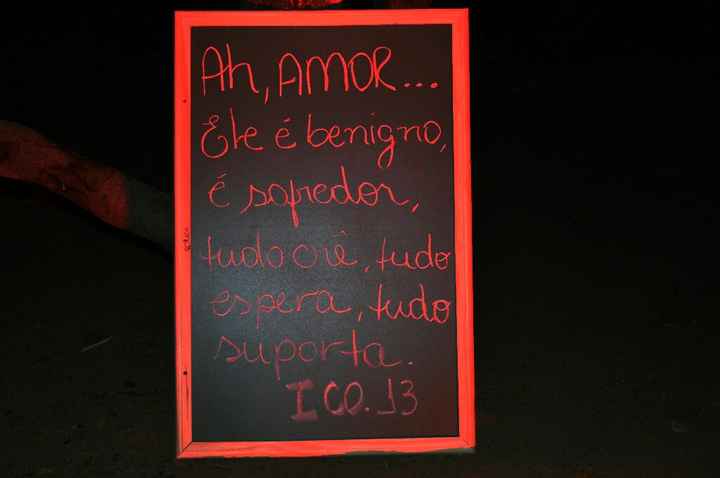 Ah, AMOR...
Ele é benigno,
é sofredor,
tudo crê, tudo
espera, tudo
suporta.
I CO. 13